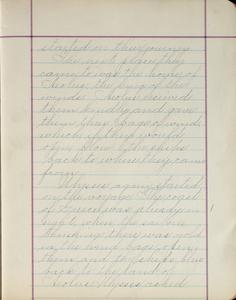 started on their journey.
The next place they
came to was the house of
Aeolus, the king of the
winds. Aeolus received
them kindly and gave
them bags of winds
which if they would
open blow the ships
back to where they came
from.
Ulysses again started
on the voyage. The coast
of Greece was already in
sight when the sailors
thinking there was gold
in the wind bags, open
them and the ships blew
back to the land of
Aeolus. Ulysses asked